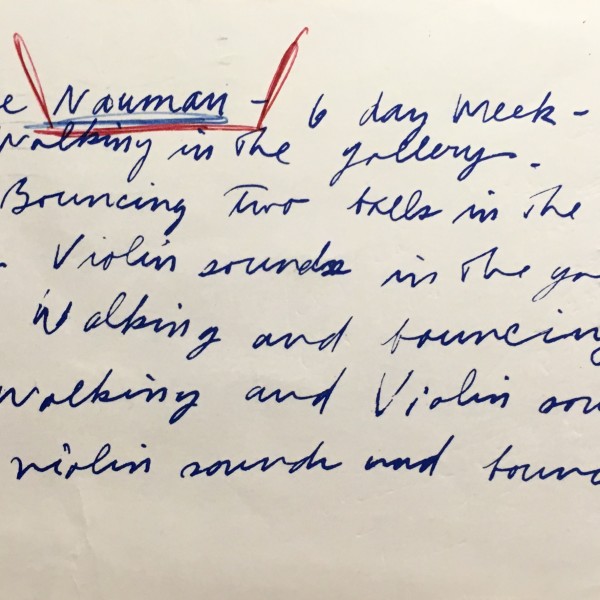 e Nauman - 6 day week -
Walking in the gallery.
Bouncing Two balls in the
Violin sounds in the ga
Walking and bouncing
Walking and Violin sou
violin sounds and bounc